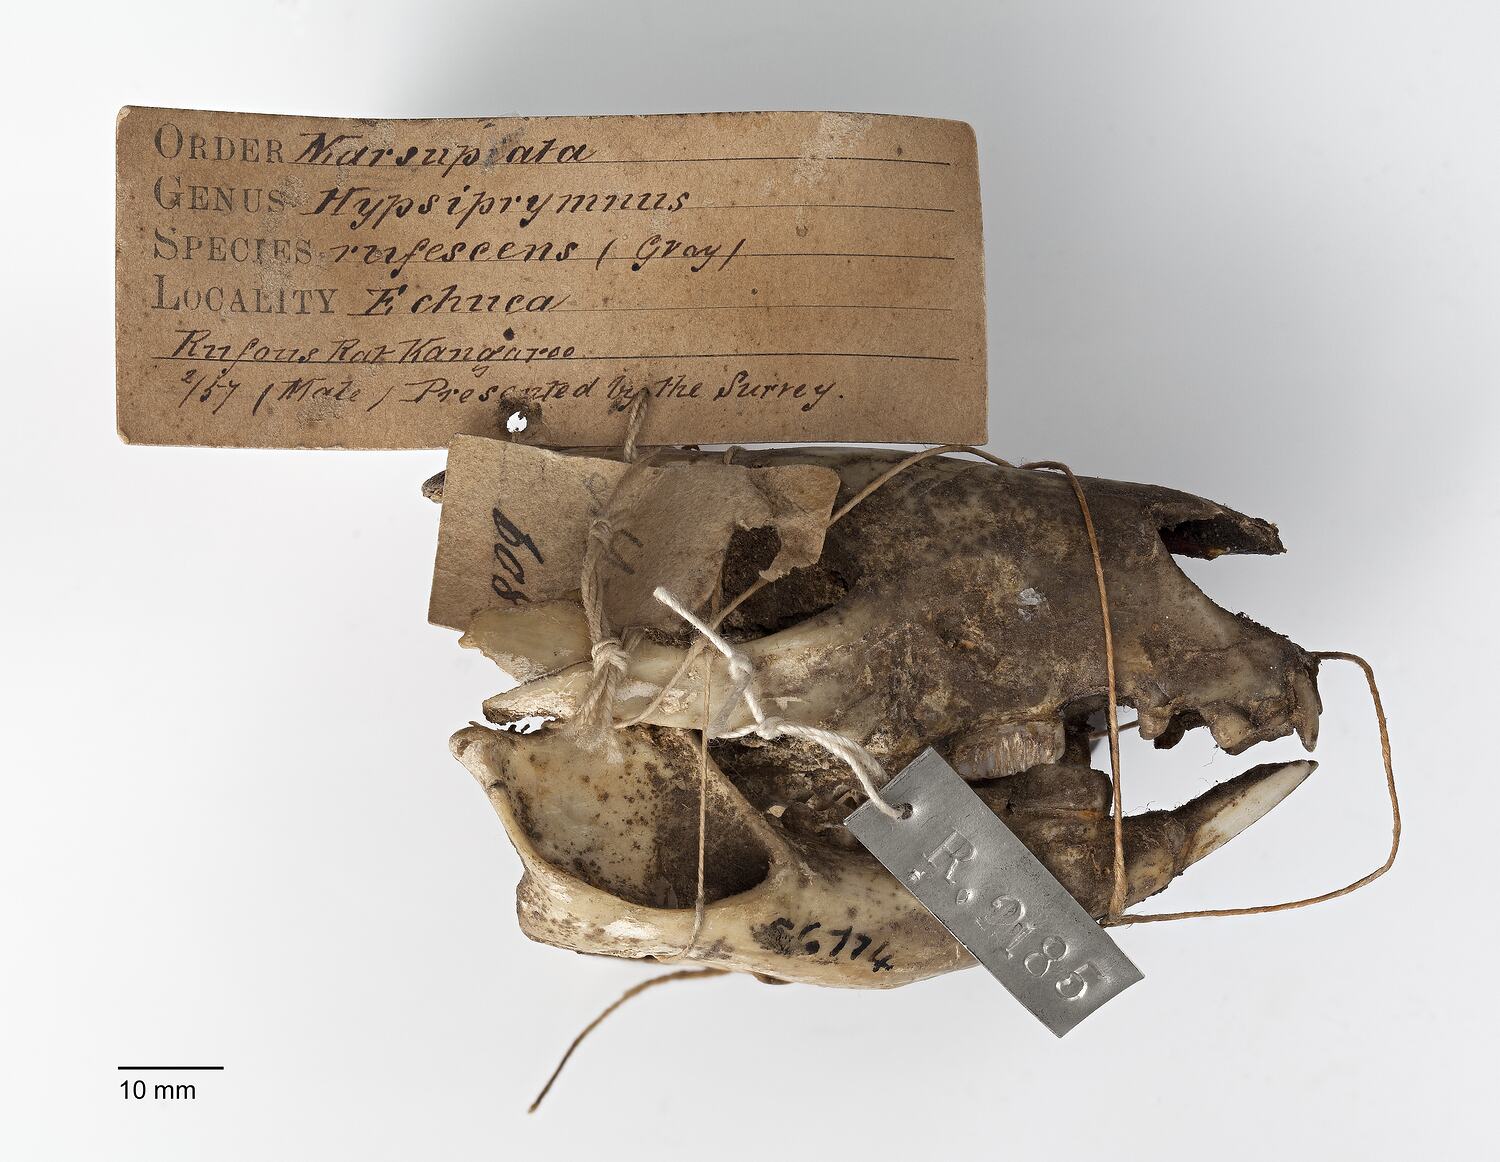 ORDER Marsupiata
GENUS Hypsiprymnus
SPECIES rufescens (Gray)
LOCALITY Echuca
Rufous Rat Kangaroo
2/57 (Male) Presented by the Surrey.
609
R.9185
C6774
10 mm